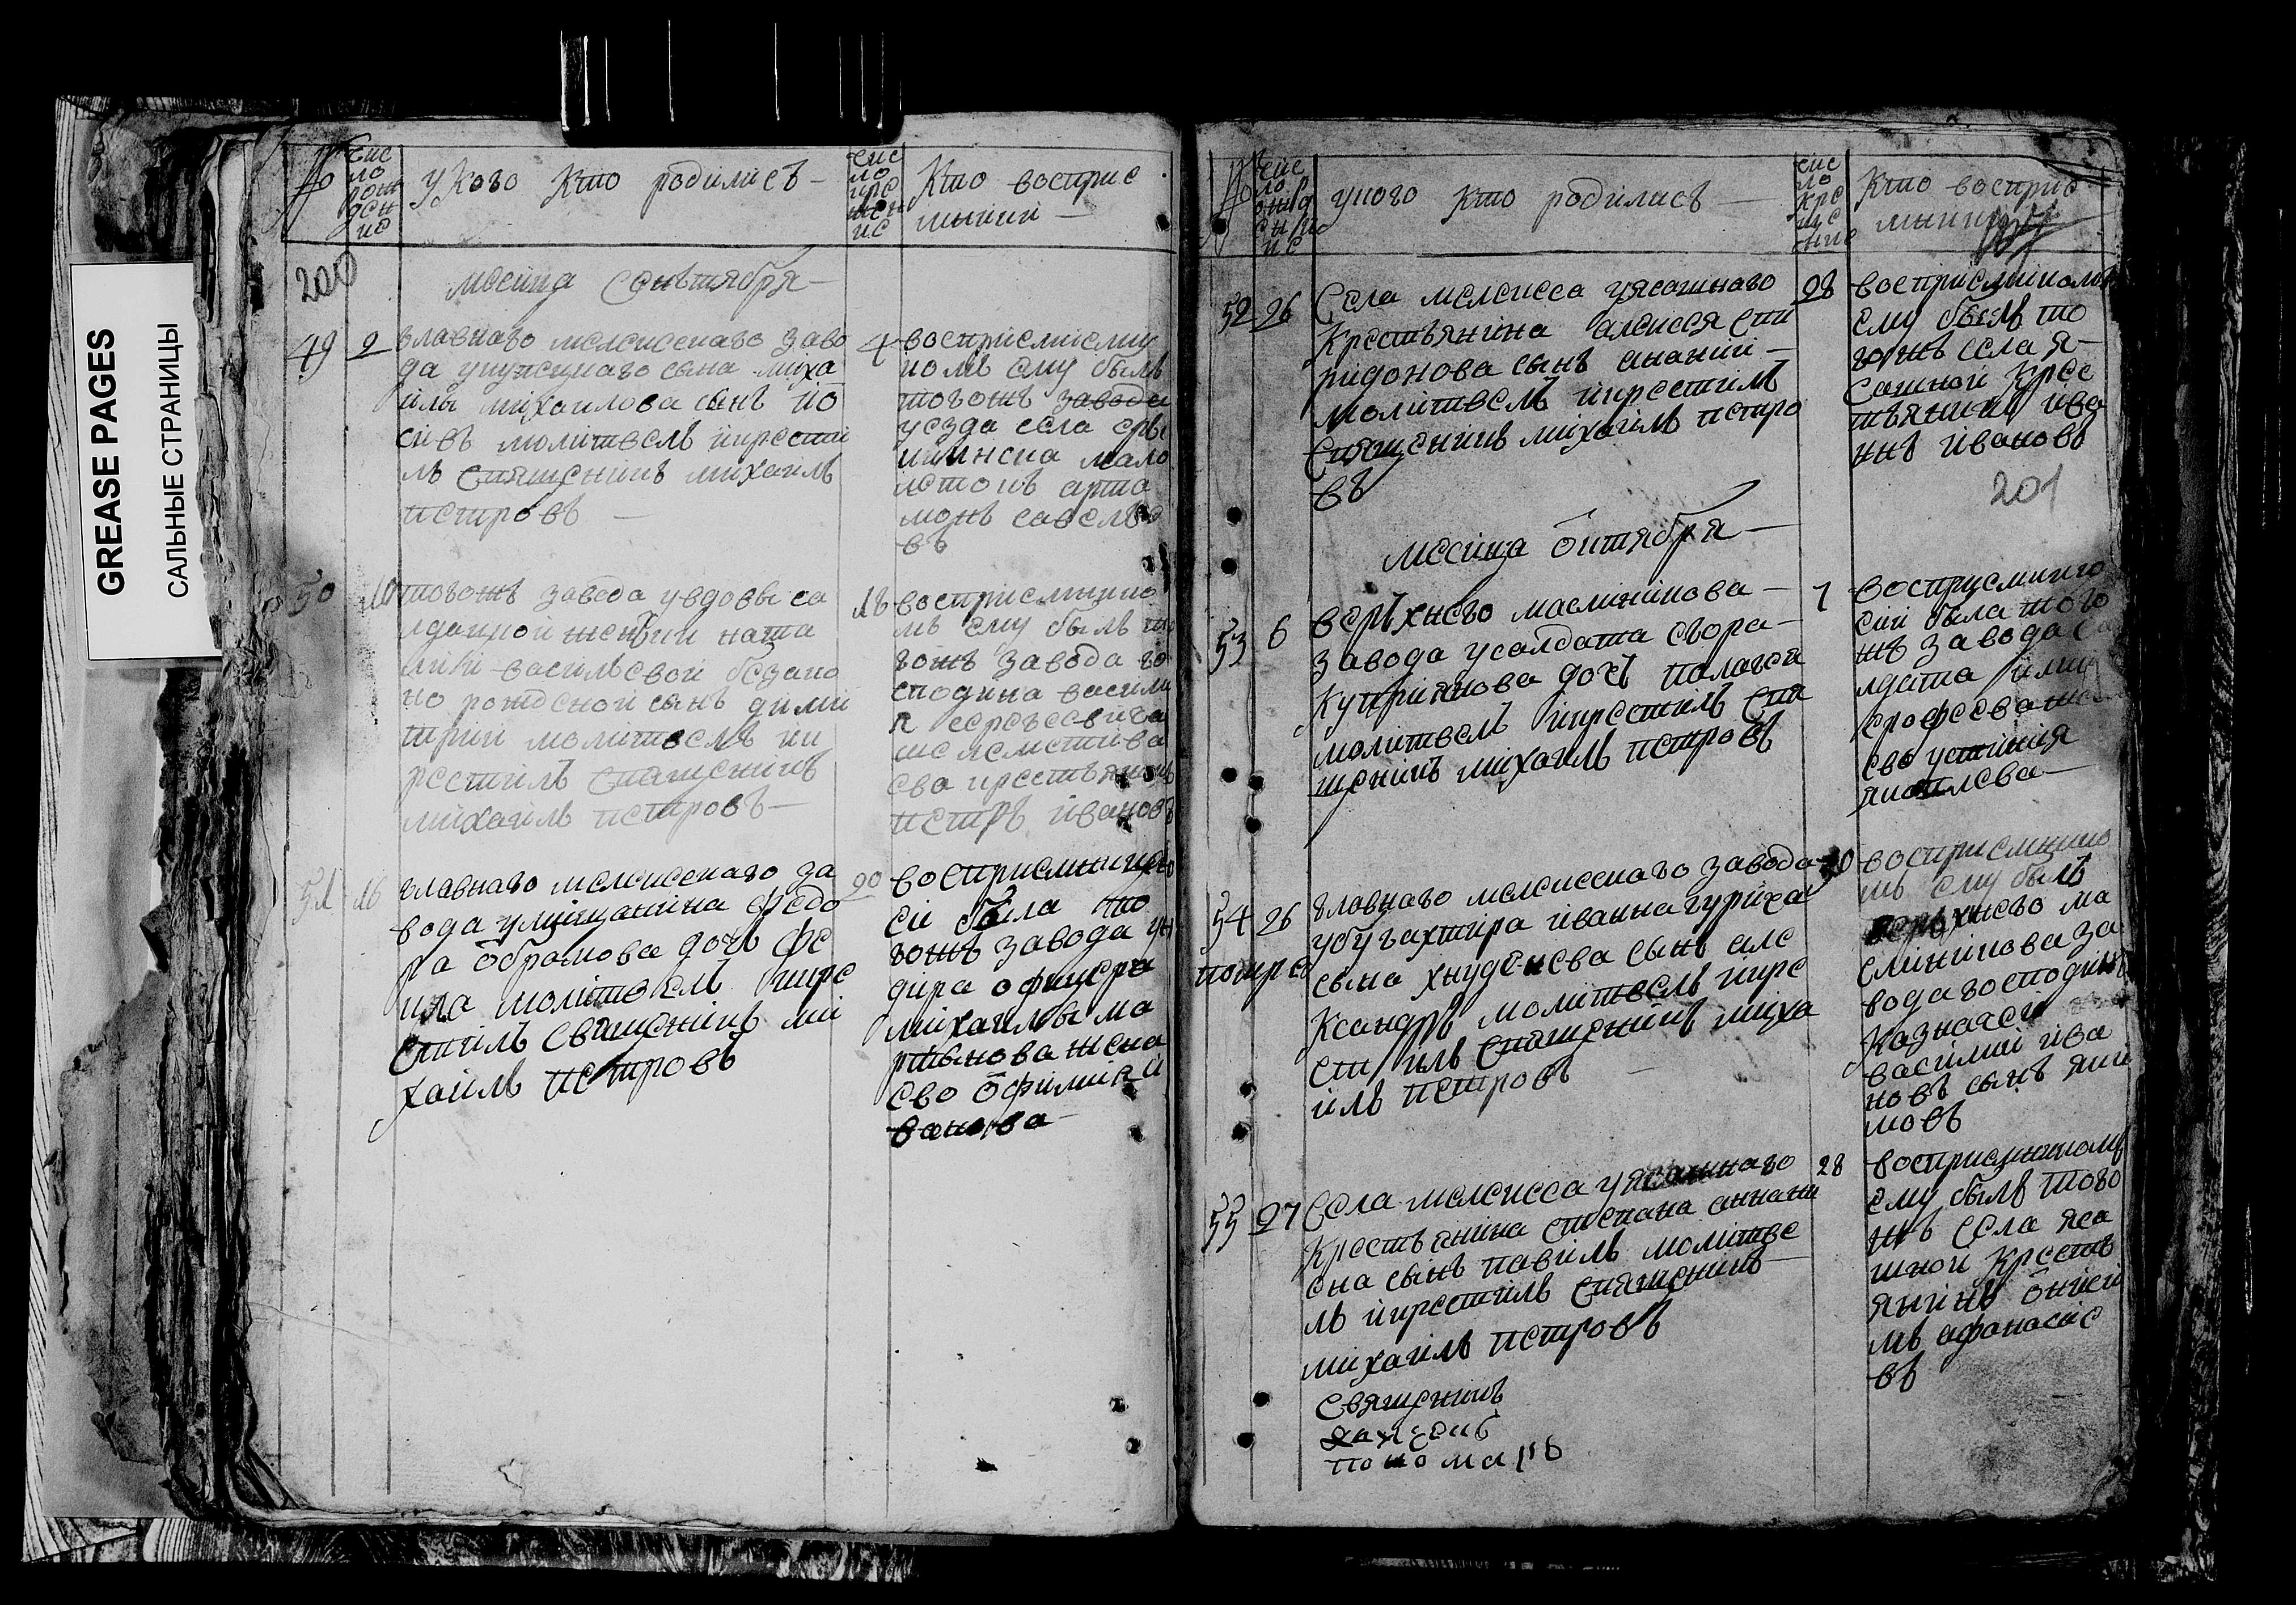 GREASE PAGES
САЛЬНЫЕ СТРАНИЦЫ
№
чис
ло
рож
ден
ие
У Кого Кто родились
чис
ло
кре
щен
ие
Кто восприе
мники
200
месяца Сентября
49 2
главнаго мелекескаго заво
да укупецкаго сына миха
илы михаилова сынъ ио
сивъ молитвелъ икрести
лъ Священикъ михаилъ
петровъ
4
восприемнику
комъ ему былъ
тогожъ завода
уезда села
мало
леток арта
монъ савелье
въ
50
тогожъ завода увдовы са
лдацкой женки ната
лии васильевой беззако
но рожденой сынъ дими
трий молитвелъ ик
рестилъ Священикъ
михаилъ петровъ
18
восприемнико
мъ ему былъ то
гожъ завода го
сподина васили
я сергеевича
ева крестьянинъ
петръ ивановъ
51 18
главнаго мелекескаго за
вода умещанина федо
ра обрамова дочь фе
кла молитвелъ икре
стилъ Священикъ ми
хаилъ петровъ
20
восприемницею
ей была то
гожъ завода ун
дира офицера
михаилы ма
ртынова жена
ево офимия и
ванова
№
чис
ло р
ожд
ен
ие
укого кто родились
чис
ло
кре
ще
ние
Кто восприе
мники
52 26
Села мелекеса уясашнаго
Крестьянина алексея спи
ридонова сынъ ананий
молитвелъ икрестилъ
Священикъ михаилъ петро
въ
28
восприемникомъ
ему былъ то
гожъ села я
сашной Крес
тьянинъ ива
нъ ивановъ
201
месяца октября
53 6
верхнего маслинникова
завода усалдата егора
Куприянова дочь палагея
молитвелъ икрестилъ Свя
щеникъ михаилъ петровъ
7
восприемнико
ей была того
жъ завода са
лдата
ерофеева жена
ево устиния
яковлева
54 26
помре
главнаго мелекескаго завода
убугахтира иванна гуриха
сына хнуденева сынъ але
Ксандръ молитвелъ икре
стилъ Священикъ миха
илъ петровъ
30
восприемнико
мъ ему былъ
верхнего ма
слиникова за
вода господинъ
Казначей
василий ива
новъ сынъ яки
мовъ
55 27
Села мелекесса уясашнаго
Крестьянина степана аннани
ена сынъ павилъ молитве
лъ икрестилъ Священикъ
михаилъ петровъ
28
восприемникомъ
ему былъ того
жъ села яса
шной Кресть
янинъ
мъ афонасие
въ
Священикъ
пономарь